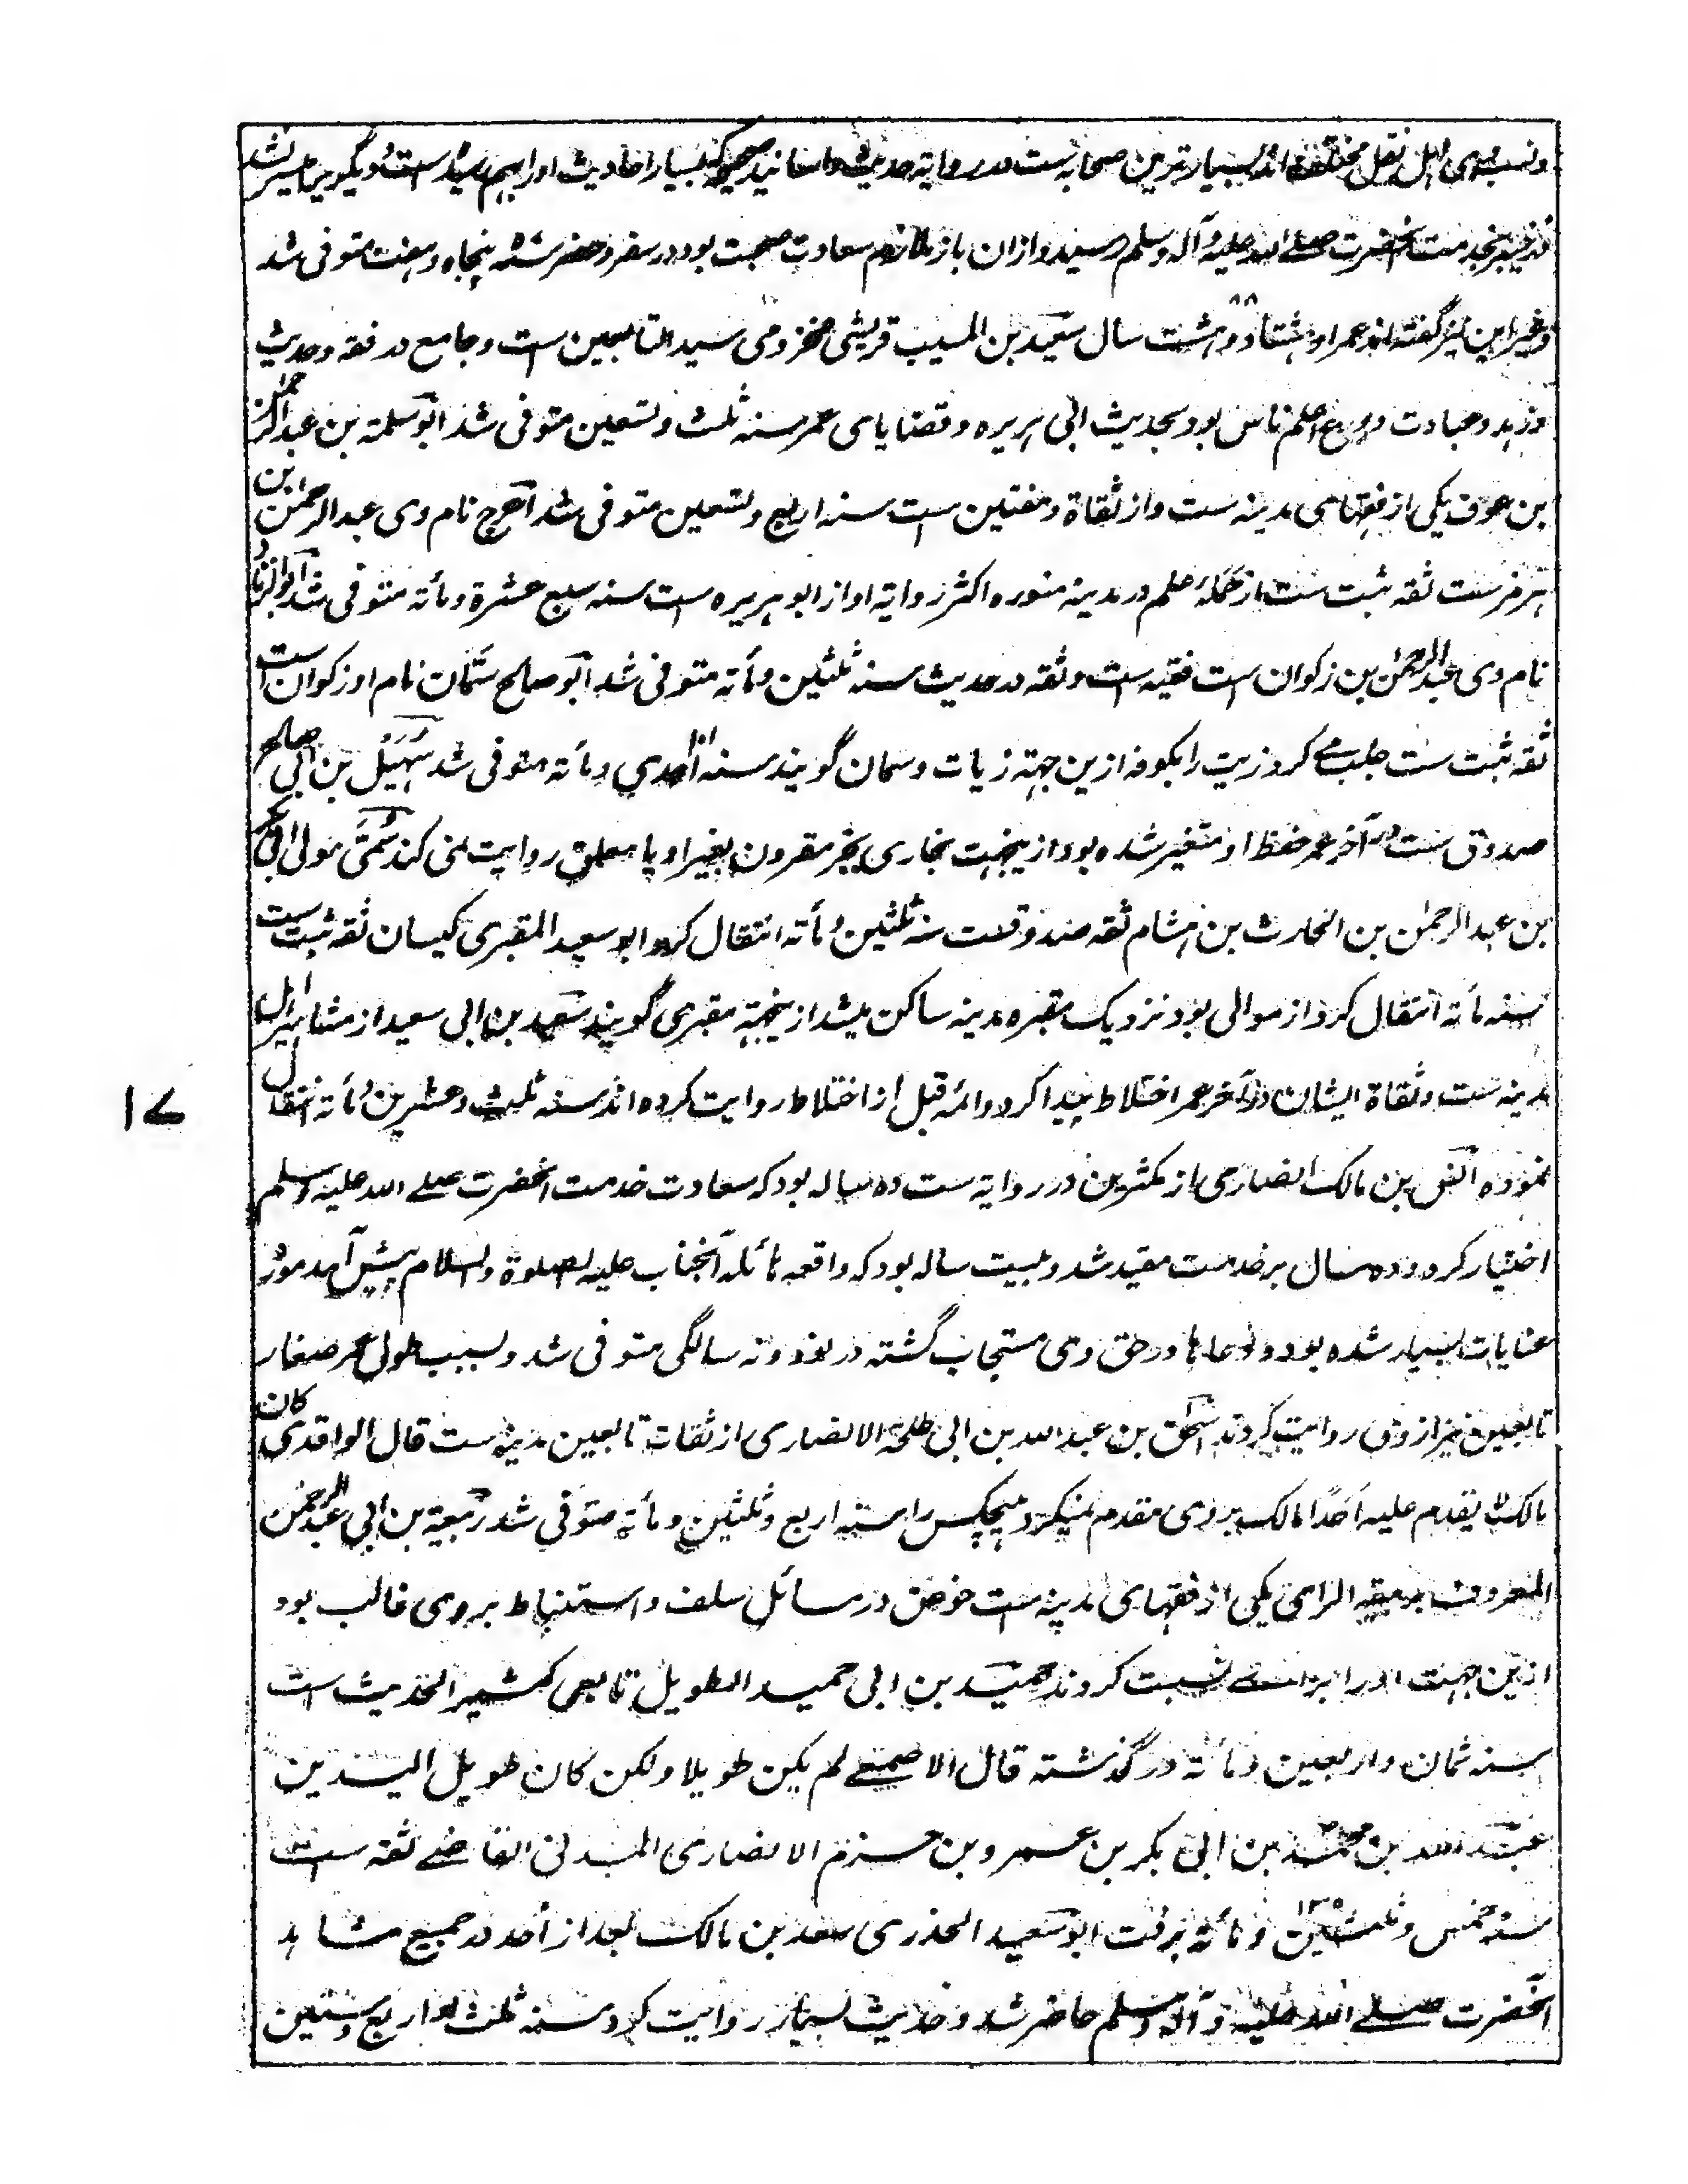 ونسب وی اهل نقل مختلف اند بسیارترین صحابه ست در روایة حدیث و اسانید صحیحه بسیار احادیث او را هم بسیار ست و دیگر یرا میسر نشد
در خیبر بخدمت آنحضرت صلے الله علیه وآله وسلم رسید و ازان باز ملازم سعادت صحبت بود در سفر و حضر سنه پنجاه وهفت متوفی شد
و غیر این نیز گفته اند عمر او هشتاد و هشت سال سعید بن المسیب قریشی مخزومی سید التابعین ست وجامع در فقه وحدیث
وزهد وعبادت و ورع اعلم ناس بود بحدیث ابی هریره وقضایای عمر سنه ثلث وتسعین متوفی شد ابوسلمة بن عبد الرحمن
بن عوف یکی از فقهای مدینه ست و از ثقاة ومفتین ست سنه اربع وتسعین متوفی شد اعرج نام وی عبد الرحمن بن
هرمز ست ثقه ثبت ست از حمله علم در مدینه منوره اکثر روایة او از ابو هریره ست سنه سبع عشرة ومأته متوفی شد ابو الزناد
نام وی عبد الرحمن بن زکوان ست فقیه ست وثقه در حدیث سنه ثلثین ومأته متوفی شد ابو صالح سمّان نام او زکوان ست
ثقه ثبت ست جلب مے کرد زیت را بکوفه ازین جهة زیات وسمان گویند سنه احدی ومأته متوفی شد سهیل بن ابی صالح
صدوق ست در آخر عمر حفظ او متغیر شده بود ازینجهت بخاری بجز مقرون بغیر او یا معلق روایت نمی کند سمی مولی ابی بکر
بن عبد الرحمن بن الحارث بن هشام ثقه صدوقست سنه ثلثین ومأته انتقال کرد ابو سعید المقبری کیسان ثقه ثبت ست
سنه مأته انتقال کرد از موالی بود نزدیک مقبره مدینه ساکن میشد ازینجهة مقبری گویند سعید بن ابی سعید از مشاهیر اهل
مدینه ست وثقاة ایشان در آخر عمر اختلاط پیدا کرد وائمه قبل از اختلاط روایت کرده اند سنه ثلث وعشرین ومأته انتقال
نموده انس بن مالک انصاری از مکثرین در روایة ست ده ساله بود که سعادت خدمت آنحضرت صلے الله علیه وسلم
اختیار کرد وده سال بر خدمت مقید شد و بیست ساله بود که واقعه هائله آنجناب علیه الصلوة والسلام پیش آمد مورد
عنایات بسیار شده بود ودعاها در حق وی مستجاب گشته در نود ونه سالگی متوفی شد وبسبب طول عمر صغار
تابعین نیز از وی روایت کردند اسحق بن عبد الله بن ابی طلحة الانصاری از ثقات تابعین مدینه ست قال الواقدی کان
مالک لا یقدم علیه احدًا مالک بر وی مقدم نمیکرد هیچکس را سنه اربع وثلثین ومأته متوفی شد ربیعة بن ابی عبد الرحمن
المعروف بربیعه الرای یکی از فقهای مدینه ست خوض در مسائل سلف واستنباط بر وی غالب بود
ازین جهت اورا برائے نسبت کردند حمید بن ابی حمید الطویل تابعی کثیر الحدیث ست
سنه ثمان واربعین ومأته در گذشته قال الاصمعے لم یکن طویلا ولکن کان طویل الیدین
عبد الله بن محمد بن ابی بکر بن عمرو بن حزم الانصاری المدنی القاضے ثقه ست
سنه خمس وثلثین ۱۳۵ ومأته برفت ابو سعید الخدری سعد بن مالک بعد از أحد در جمیع مشاهد
آنحضرت صلے الله علیه وآله وسلم حاضر شد وحدیث بسیار روایت کرد سنه ثلث او اربع وستین
۱۷